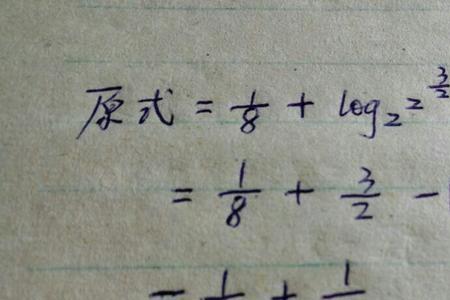 原式 = 1/8 + log₂ 2^(3/2)
= 1/8 + 3/2 -
= 1/ + 1/